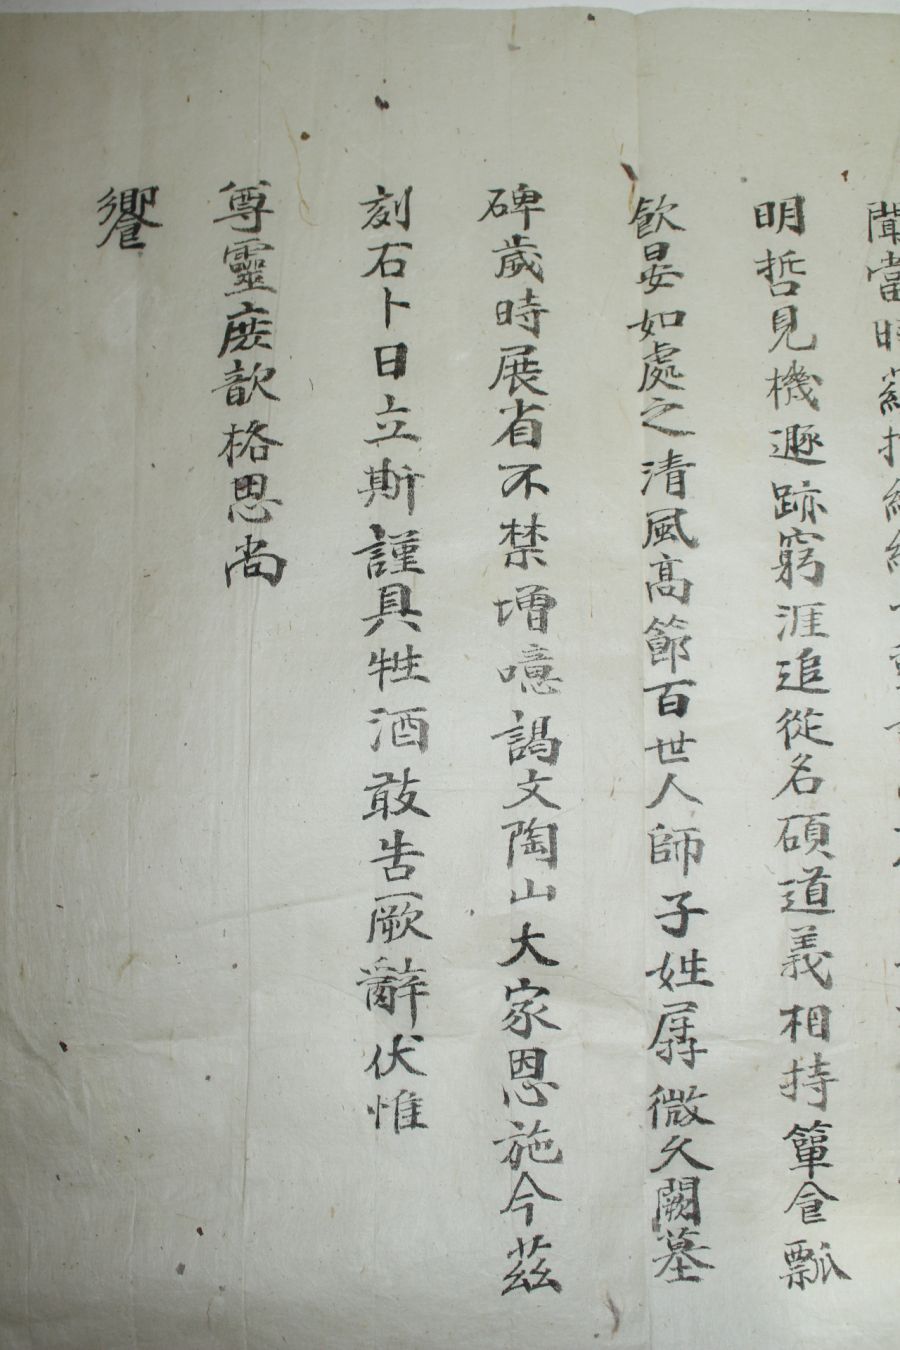 聞當時
明哲見機遯跡窮涯追從名碩道義相持簞食瓢
飮晏如處之清風高節百世人師子姓孱微久闕墓
碑歲時展省不禁增噫謁文陶山大家恩施今玆
刻石卜日立斯謹具牲酒敢告厥辭伏惟
尊靈庶歆格思尚
饗